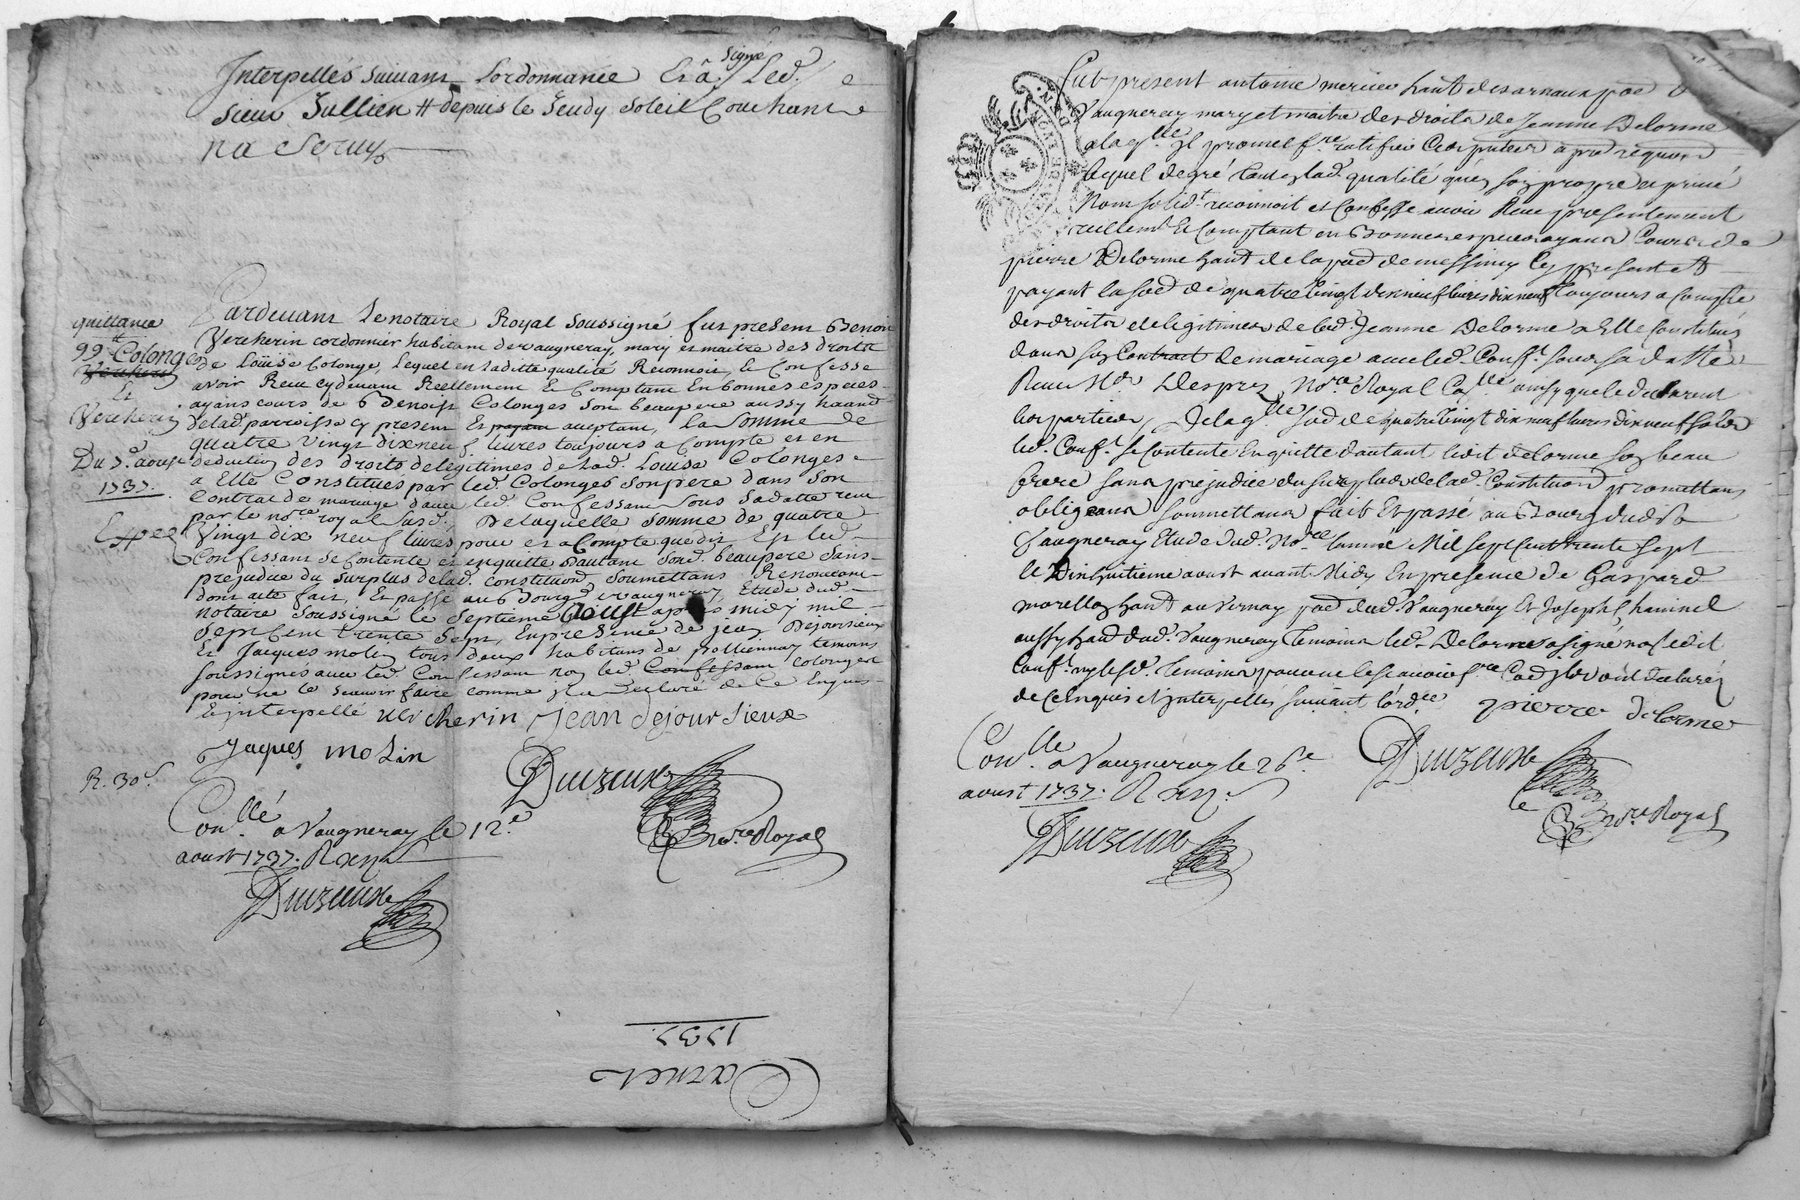 Interpellés Suivant Lordonnance Et a signé Led.
sieur Jullien # depuis le Jeudy soleil Couchant
na Servy
quittance
99 lt Colonges
Vercherin
Et
Vercherin
Du 7e aoust
1737.
Expée
Pardevant Le notaire Royal soussigné fut present Benoit
Vercherin cordonnier habitant de vaugneray, mary et maitre des droits
de Loüise Colonge, Lequel en laditte qualité Reconnoit, & Confesse
avoir Receu cydevant Reellement & Comptant En bonnes especes
ayans cours de Benoist Colonges son beaupere aussy haant
delad. parroisse cy present Et payant acceptant, La somme de
quatre vingt dix neuf livres toujours a compte et en
deduction des droits delegitimes de lad. Louise Colonges
a Elle Constitués par led. Colonges son pere dans son
Contrat de mariage d'avec led. Confessant sous sa datte receu
par le nore. royal susd. De laquelle somme de quatre
Vingt dix neuf livres pour et a Compte que dit Est led.
Confessant se contente et enquitte d'autant sond. beaupere sans
prejudice du surplus delad. constitution soumettans Renoncans
dont acte fait, Et passé au Bourg de vaugneray Etude dud.
notaire soussigné le septieme aoust apres midy mil
sept cent trente sept, En presence de jean Dejoursieux
Et Jacques molin tous deux habitans de pollionnay temoins
soussignés avec led. Confessant non led. Confessant Colonges
pour ne le scavoir faire comme il a declaré de Ce Enquis
Et interpellé Vercherin jean dejoursieux
jaques molin
R. 30s
Duizeux
nore. Royal
Conllé a Vaugneray le 12e
aoust 1737. R
Duizeux
1737.
Carnet
Fut present antoine mercier hant des arnaux pse d
Vaugneray mary et maitre des droits de Jeanne Delorme
a laqlle il promet fre ratifier Ces ptes a pre requon
lequel de gré tant en lad. qualité qu'en son propre et privé
Nom solidt reconnoit et Confesse avoir Receu presentement
reellemt Et Comptant en Bonnes especes ayans Cours de
pierre Delorme hant de la psse de messimy Cy present et
payant la some de quatre vingt dix neuf livres dix neuf toujours a Compte
des droits delegitimes de lad. Jeanne Delorme a Elle Constitués
dans son Contrat de mariage avec led. Conft. sous sa datte
Receu Me Despres Nore Royal Caplle ainsy que le declarent
les parties, De laqlle some de quatre vingt dix neuf livres dix neuf sols
led. Conft. se Contente Enquitte dautant ledit delorme son beau
frere sans prejudice du surplus de lad. Constitution promettans
obligeans soumettans fait Et passé au Bourg dudit
Vaugneray Etude dud. Nore lannee Mil sept Cent trente sept
le Dixhuitieme aoust avant Midy En presence de Gaspard
morellon hant au Vernay psse dud. Vaugneray Et Joseph Chaninel
aussy hand dud. Vaugneray temoins led. Delorme a signé non ledit
Conft. ny lesd. temoins pour ne le scavoir fre Comme ils ont declaré
de ce Enquis et interpellés suivant lordce pierre delorme
Conlle a Vaugneray le 26e
aoust 1737. R
Duizeux
Duizeux
nore Royal